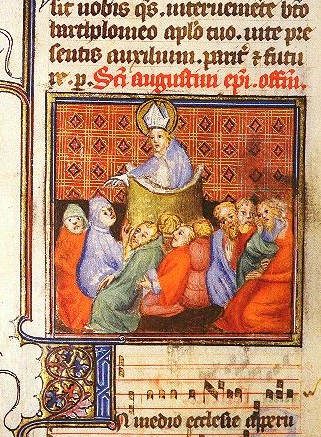 sit nobis qs. interveniente bto
bartholomeo aplo tuo. vite pre
sentis auxilium. parit᷑ & futu
re. p. Sci augustini epi. offm.
In medio ecclesie aperu